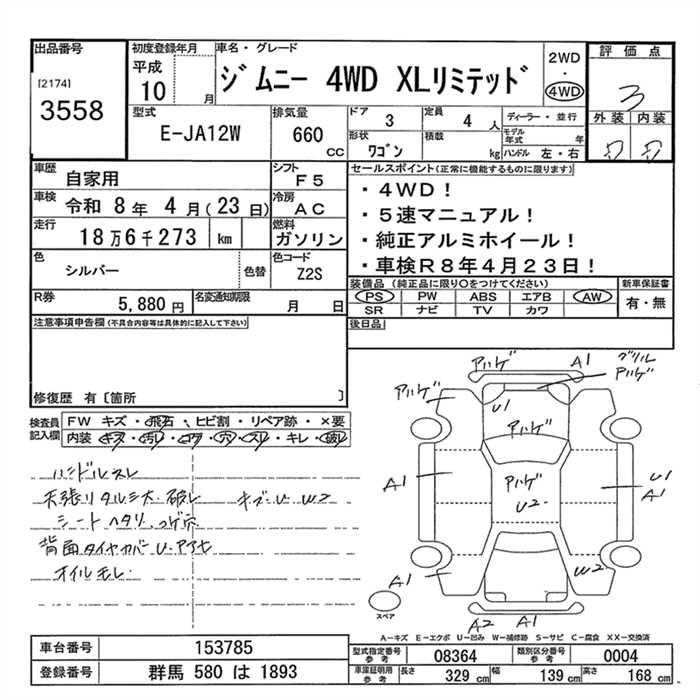 出品番号
[2174]
3558
初度登録年月
平成
10 月
車名・グレード
ジムニー 4WD XLリミテッド
2WD
・
4WD
評価点
3
外装 内装
D D
型式
E-JA12W
排気量
660 CC
ドア
3
定員
4 人
形状
ワゴン
積載
kg
ディーラー・並行
モデル年式 年
ハンドル 左・右
車歴
自家用
シフト
F5
車検
令和 8年 4月(23日)
冷房
AC
走行
18万6千273 km
燃料
ガソリン
色
シルバー
色替
色コード
Z2S
セールスポイント(正常に機能するものに限ります)
・4WD!
・5速マニュアル!
・純正アルミホイール!
・車検R8年4月23日!
R券
5,880円
名変通知期限
月 日
装備品(純正品に限り○をつけてください)
PS PW ABS エアB AW
SR ナビ TV カワ
新車保証書
有・無
後日品
注意事項申告欄(不具合内容等は具体的に記入して下さい)
修復歴 有〔箇所 〕
検査員記入欄
FW キズ・飛石、ヒビ割・リペア跡・×要
内装 キズ・汚レ・コゲ・穴・スレ・キレ・破レ
ハンドルスレ
天張リタルミ大・破レ キズ・U W2
シートヘタリ、コゲ穴
背面タイヤカバーU・アセ
オイルモレ
アハゲ
A1
グリル
アハゲ
アハゲ
U1
アハゲ
A1
アハゲ
U2
U1
A1
A1
W2
A2 A1
スペア
A-キズ E-エクボ U-凹み W-補修跡 S-サビ C-腐食 XX-交換済
車台番号
153785
登録番号
群馬 580 は 1893
型式指定番号
参考
08364
類別区分番号
参考
0004
車庫証明用
参考
長さ 329 cm 幅 139 cm 高さ 168 cm